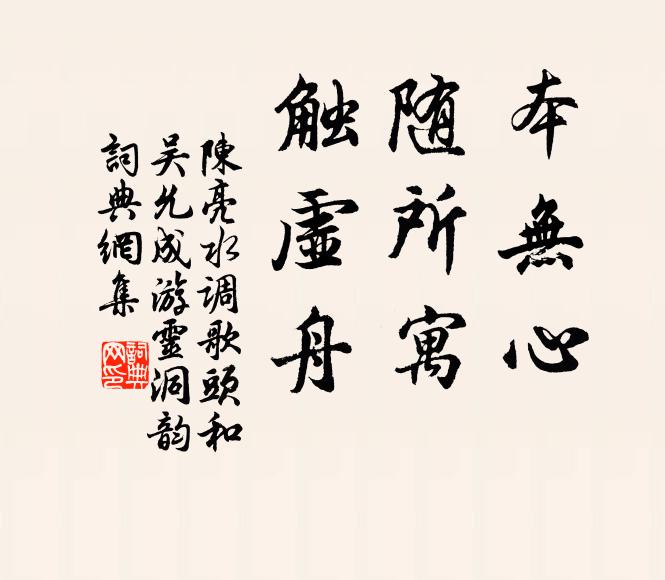 本無心
随所寓
触虚舟
陳亮水调歌頭和
吴允成游靈洞韵
詞典網集
詞典網印